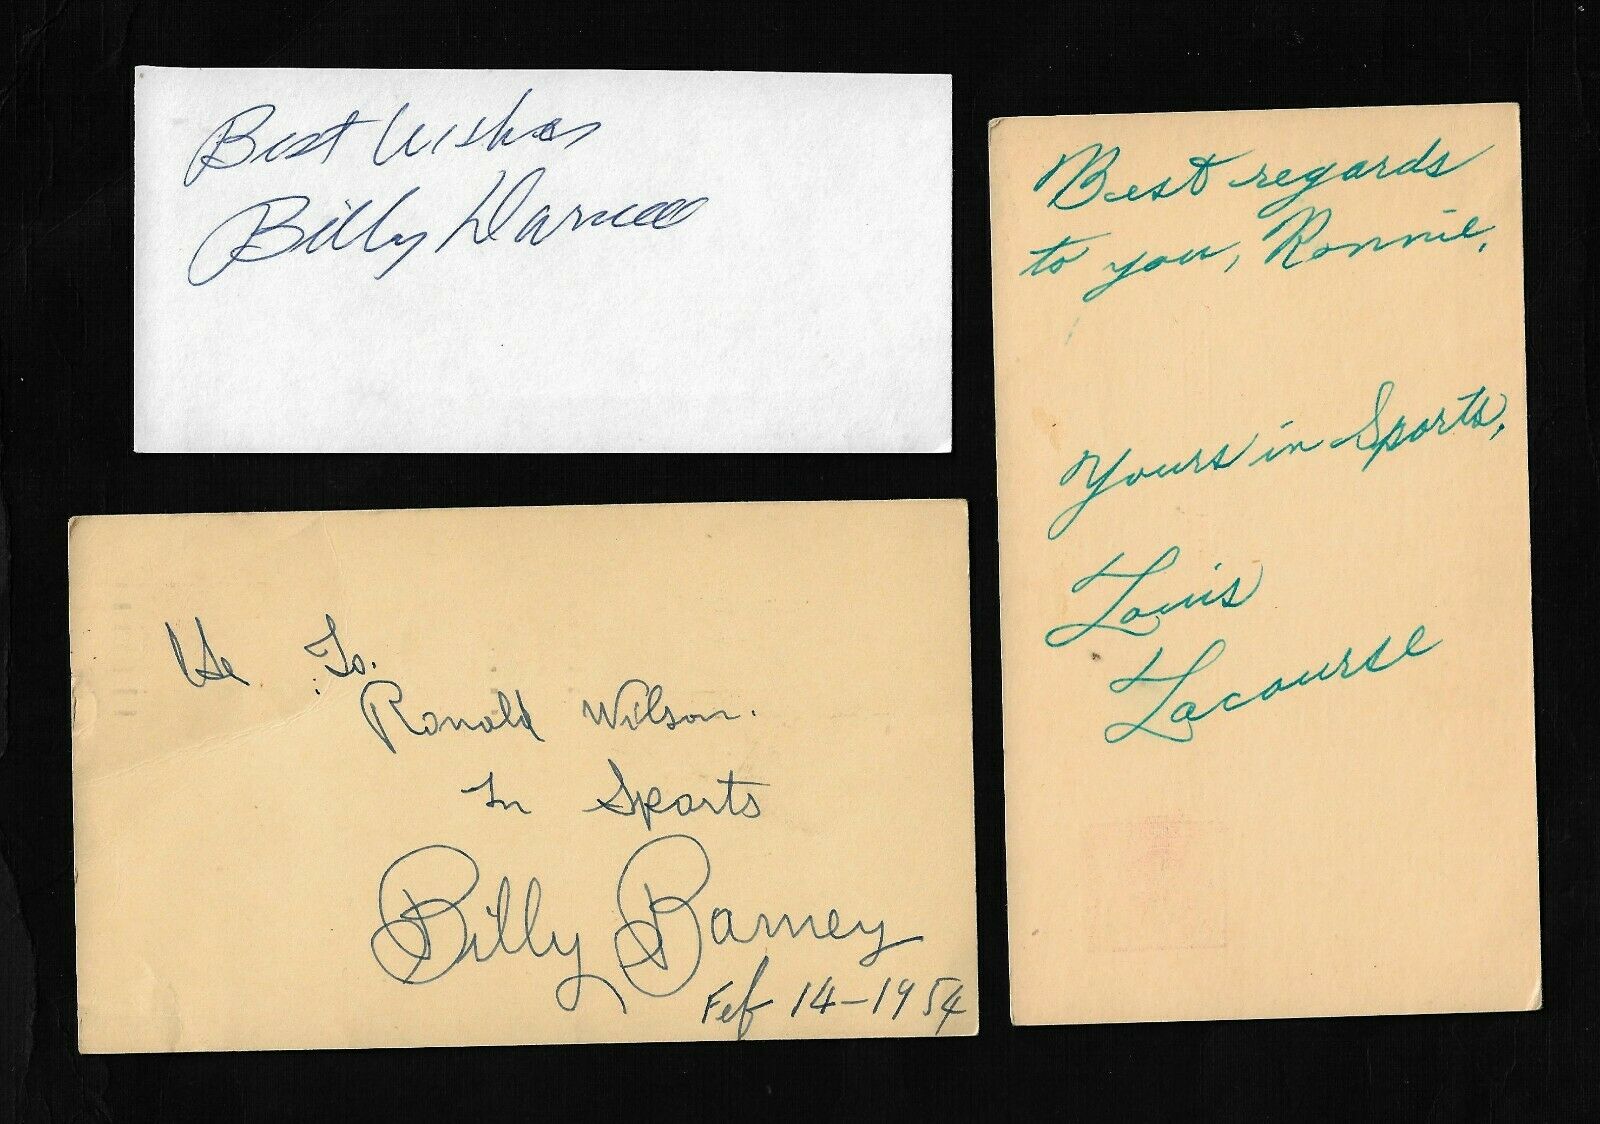 Best Wishes
Billy Darnell
To.
Ronald Wilson.
In Sports
Billy Barney
Feb 14-1954
Best regards
to you, Ronnie,
Yours in Sports,
Louis
Lacourse